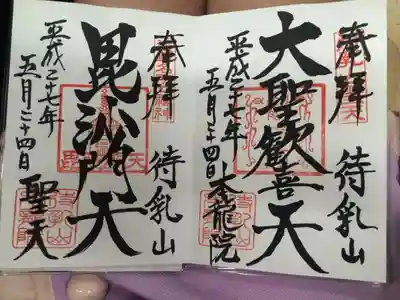 奉拜
待乳山
大聖歓喜天
平成二十七年
五月二十四日 本龍院
奉拜
待乳山
毘沙門天
平成二十七年
五月二十四日 聖天